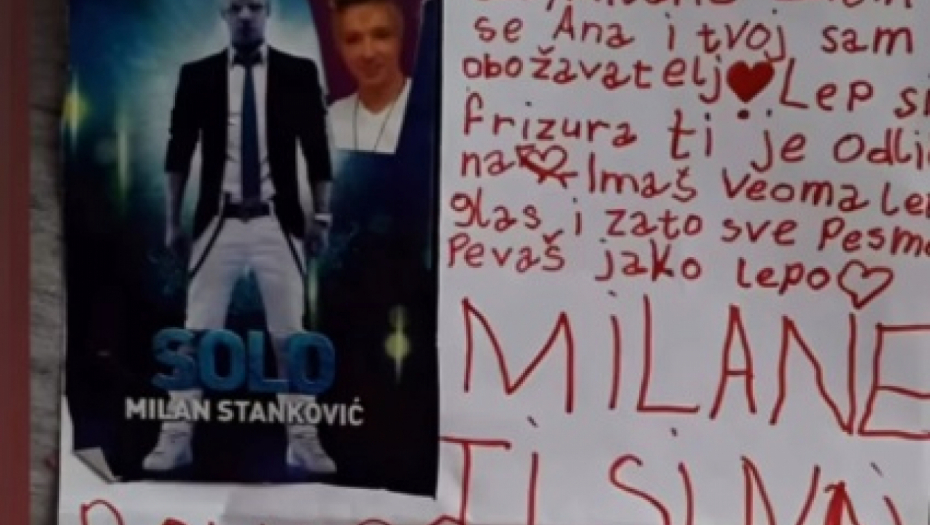 SOLO
MILAN STANKOVIĆ
se Ana i tvoj sam
obožavatelj Lep si
frizura ti je odlič
na Imaš veoma
glas, i zato sve Pesme
Pevaš jako lepo
MILANE
TI SI